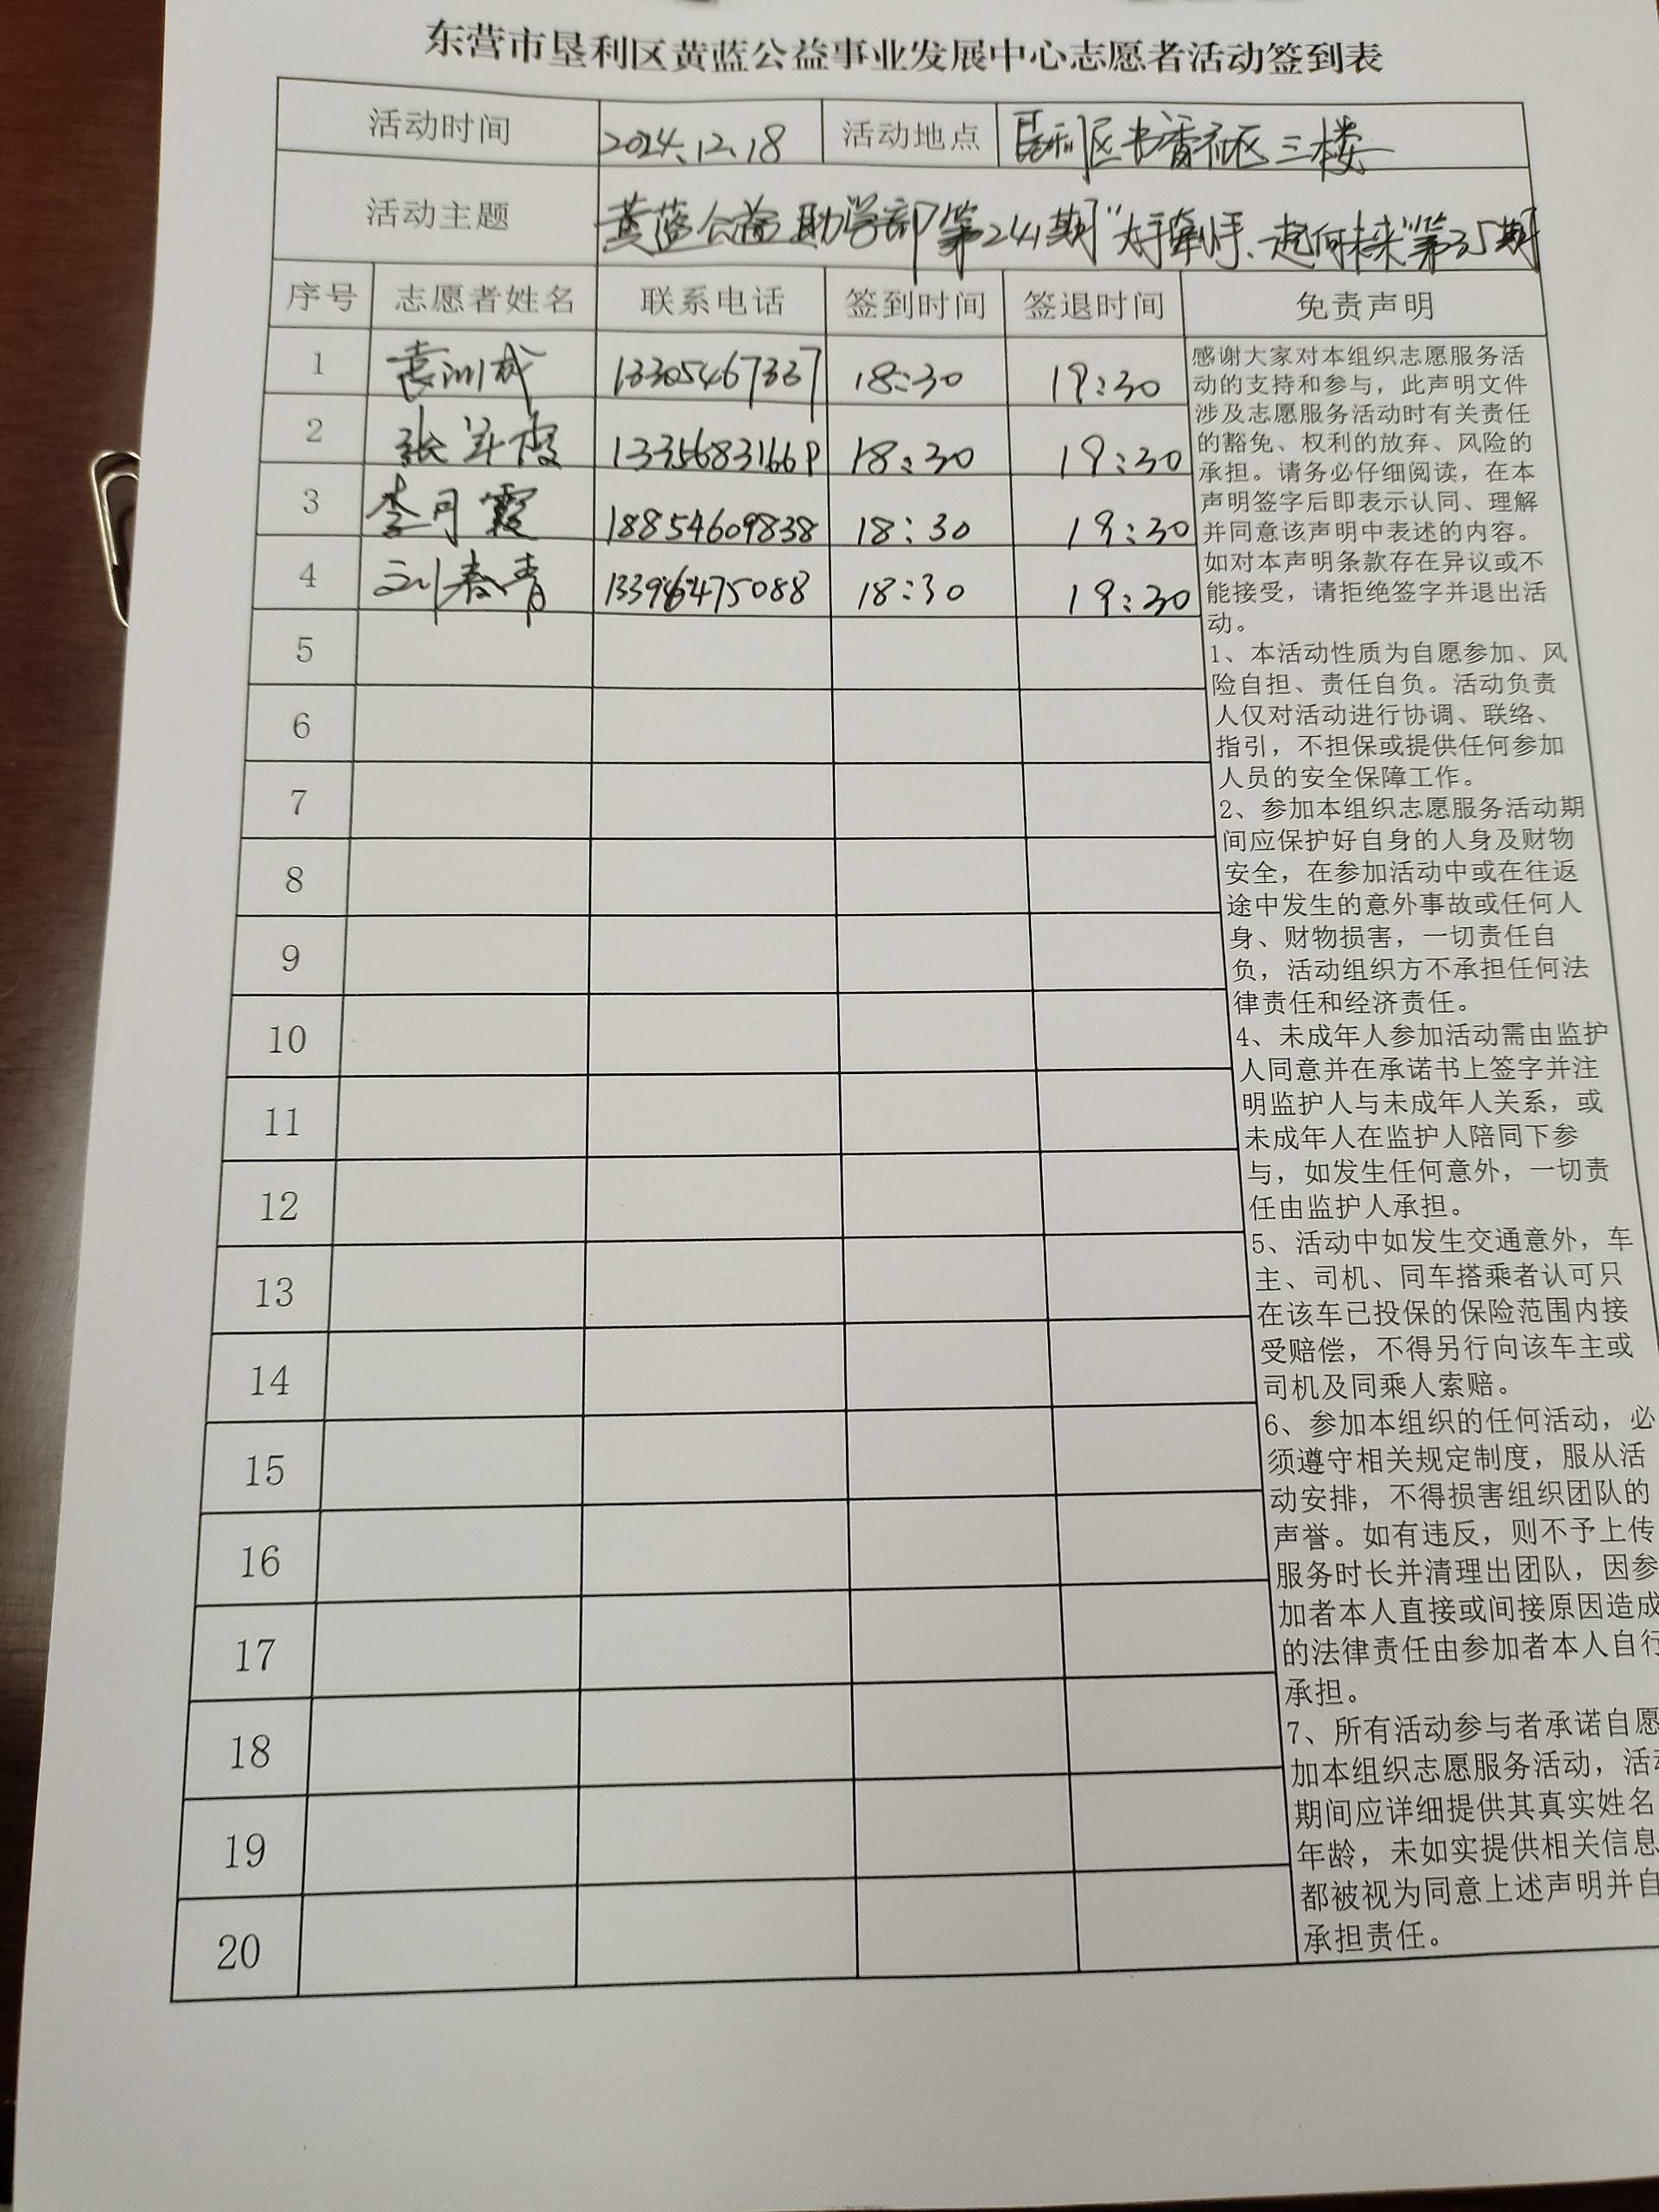 东营市垦利区黄蓝公益事业发展中心志愿者活动签到表
活动时间 2024.12.18 活动地点 垦利区书香社区三楼
活动主题 黄蓝公益助学部第241期“大手牵小手、一起向未来”第35期
序号 志愿者姓名 联系电话 签到时间 签退时间 免责声明
1 袁洲成 13305467337 18:30 19:30
2 张 霞 13356831669 18:30 19:30
3 李月霞 18854609838 18:30 19:30
4 刘春青 18:30 19:30
5
6
7
8
9
10
11
12
13
14
15
16
17
18
19
20
感谢大家对本组织志愿服务活
动的支持和参与，此声明文件
涉及志愿服务活动时有关责任
的豁免、权利的放弃、风险的
承担。请务必仔细阅读，在本
声明签字后即表示认同、理解
并同意该声明中表述的内容。
如对本声明条款存在异议或不
能接受，请拒绝签字并退出活
动。
1、本活动性质为自愿参加、风
险自担、责任自负。活动负责
人仅对活动进行协调、联络、
指引，不担保或提供任何参加
人员的安全保障工作。
2、参加本组织志愿服务活动期
间应保护好自身的人身及财物
安全，在参加活动中或在往返
途中发生的意外事故或任何人
身、财物损害，一切责任自
负，活动组织方不承担任何法
律责任和经济责任。
4、未成年人参加活动需由监护
人同意并在承诺书上签字并注
明监护人与未成年人关系，或
未成年人在监护人陪同下参
与，如发生任何意外，一切责
任由监护人承担。
5、活动中如发生交通意外，车
主、司机、同车搭乘者认可只
在该车已投保的保险范围内接
受赔偿，不得另行向该车主或
司机及同乘人索赔。
6、参加本组织的任何活动，必
须遵守相关规定制度，服从活
动安排，不得损害组织团队的
声誉。如有违反，则不予上传
服务时长并清理出团队，因参
加者本人直接或间接原因造成
的法律责任由参加者本人自行
承担。
7、所有活动参与者承诺自愿
加本组织志愿服务活动，活动
期间应详细提供其真实姓名
年龄，未如实提供相关信息
都被视为同意上述声明并自
承担责任。